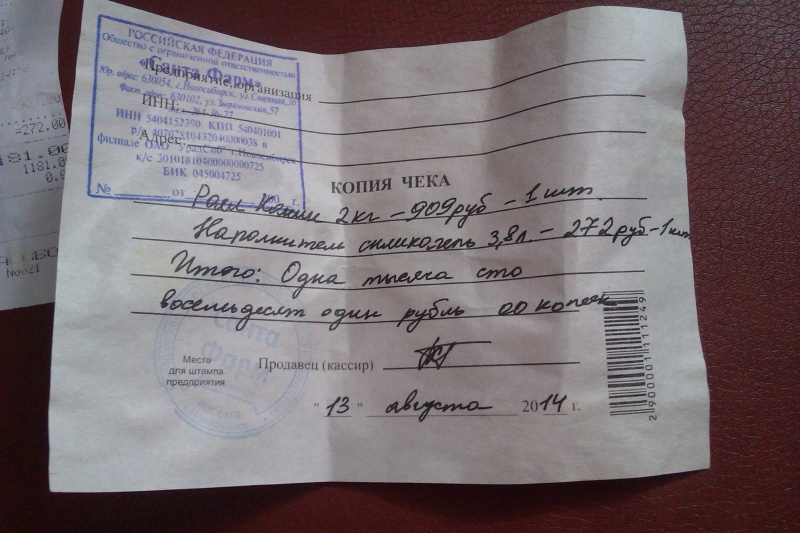 РОССИЙСКАЯ ФЕДЕРАЦИЯ
Общество с ограниченной ответственностью
«Санта Фарм»
Юр. адрес: 630054, г. Новосибирск,
Факт. адрес: 630102, ул. Зыряновская, 57
ИНН КПП 540401001
р/с в
филиале ОАО "УралСиб" г. Новосибирск
к/с 30101810400000000725
БИК 045004725
№ от 200 г.
Предприятие, организация
ИНН:
Адрес:
КОПИЯ ЧЕКА
Роял Канин 2кг – 909руб – 1шт.
Наполнитель силикогель 3,8л. – 272руб-1шт
Итого: Одна тысяча сто
восемьдесят один рубль 00 копеек
Место
для штампа
предприятия
Продавец (кассир)
Санта
Фарм
"13" августа 2014 г.
2 900001 111249
=272.00
1181.00